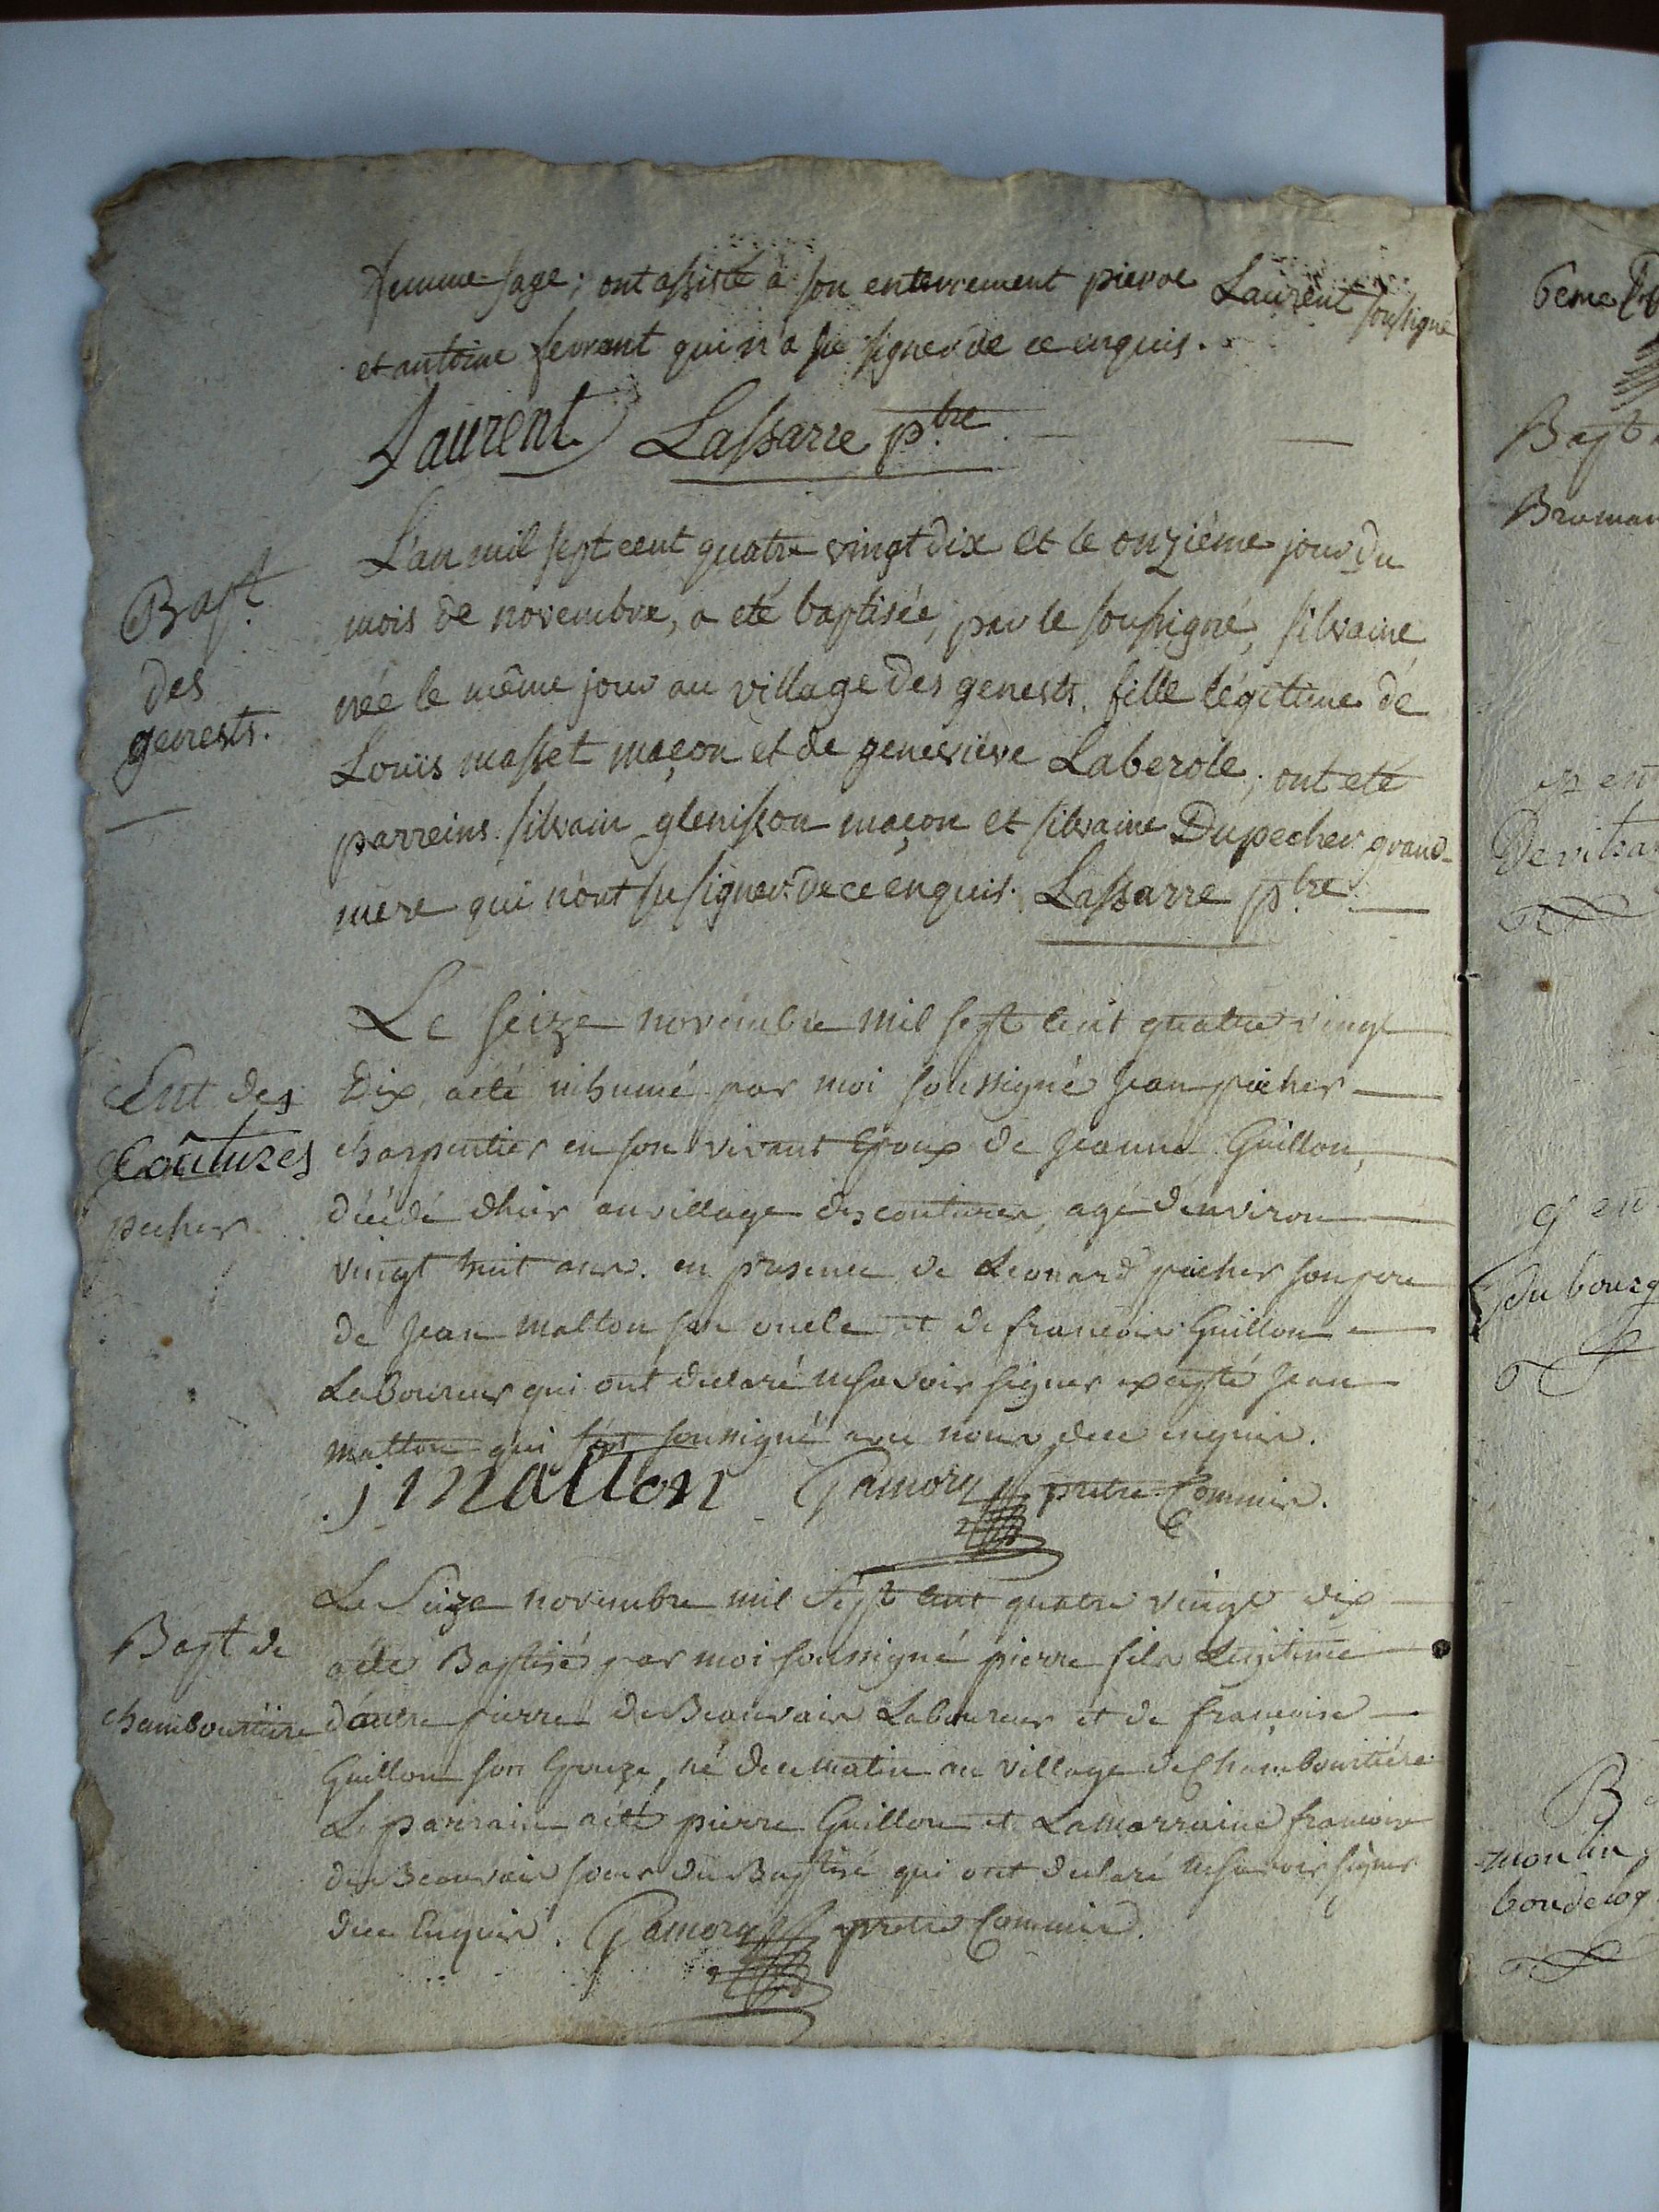 femme-sage; ont assisté à son enterrement pierre Laurent soussigné
et antoine ferrant qui n'a su signer de ce enquis.
Laurent Lassarre pbre
L'an mil sept cent quatre vingt dix et le onzième jour du
Bapt.
mois de novembre, a eté baptisée, par le soussigné, silvaine
des
née le même jour au village des genests. fille légitime de
genests.
Louis masset maçon et de geneviève Laberole; ont eté
parreins silvain glenisson maçon et silvaine Dupecher grand-
mere qui n'ont su signer de ce enquis. Lassarre pbre
Le seize novembre mil sept cent quatre vingt
Ent des
Dix, aété inhumé par moi soussigné Jean pecher
Coûtures
charpentier en son vivant Epoux de Jeanne Guillon,
pecher
décédé dhier au village des coutures, agé d'environ
vingt huit ans. en presence de Leonard pecher son pere
de Jean matton son oncle et de francois Guillon
Laboureur qui ont declaré nesavoir signer excepté Jean
matton qui s'est soussigné avec nous dece enquis.
j matton Gamory pretre Commis.
Le Seize novembre mil Sept cent quatre vingt dix
Bapt de
aété Baptisé par moi soussigné pierre fils Legitime
chamboursiere
d'autre pierre de Beauvais Laboureur et de francoise
Guillon son Epouze, né de ce matin au village de Chamboursiére
Le parrain aété pierre Guillon et La marraine francoise
de Beauvais soeur du Baptisé qui ont declaré nesavoir signer
dece Enquis. Gamory pretre Commis.
6eme
Bapt
ez en
Gen
du bourg
B
moulin